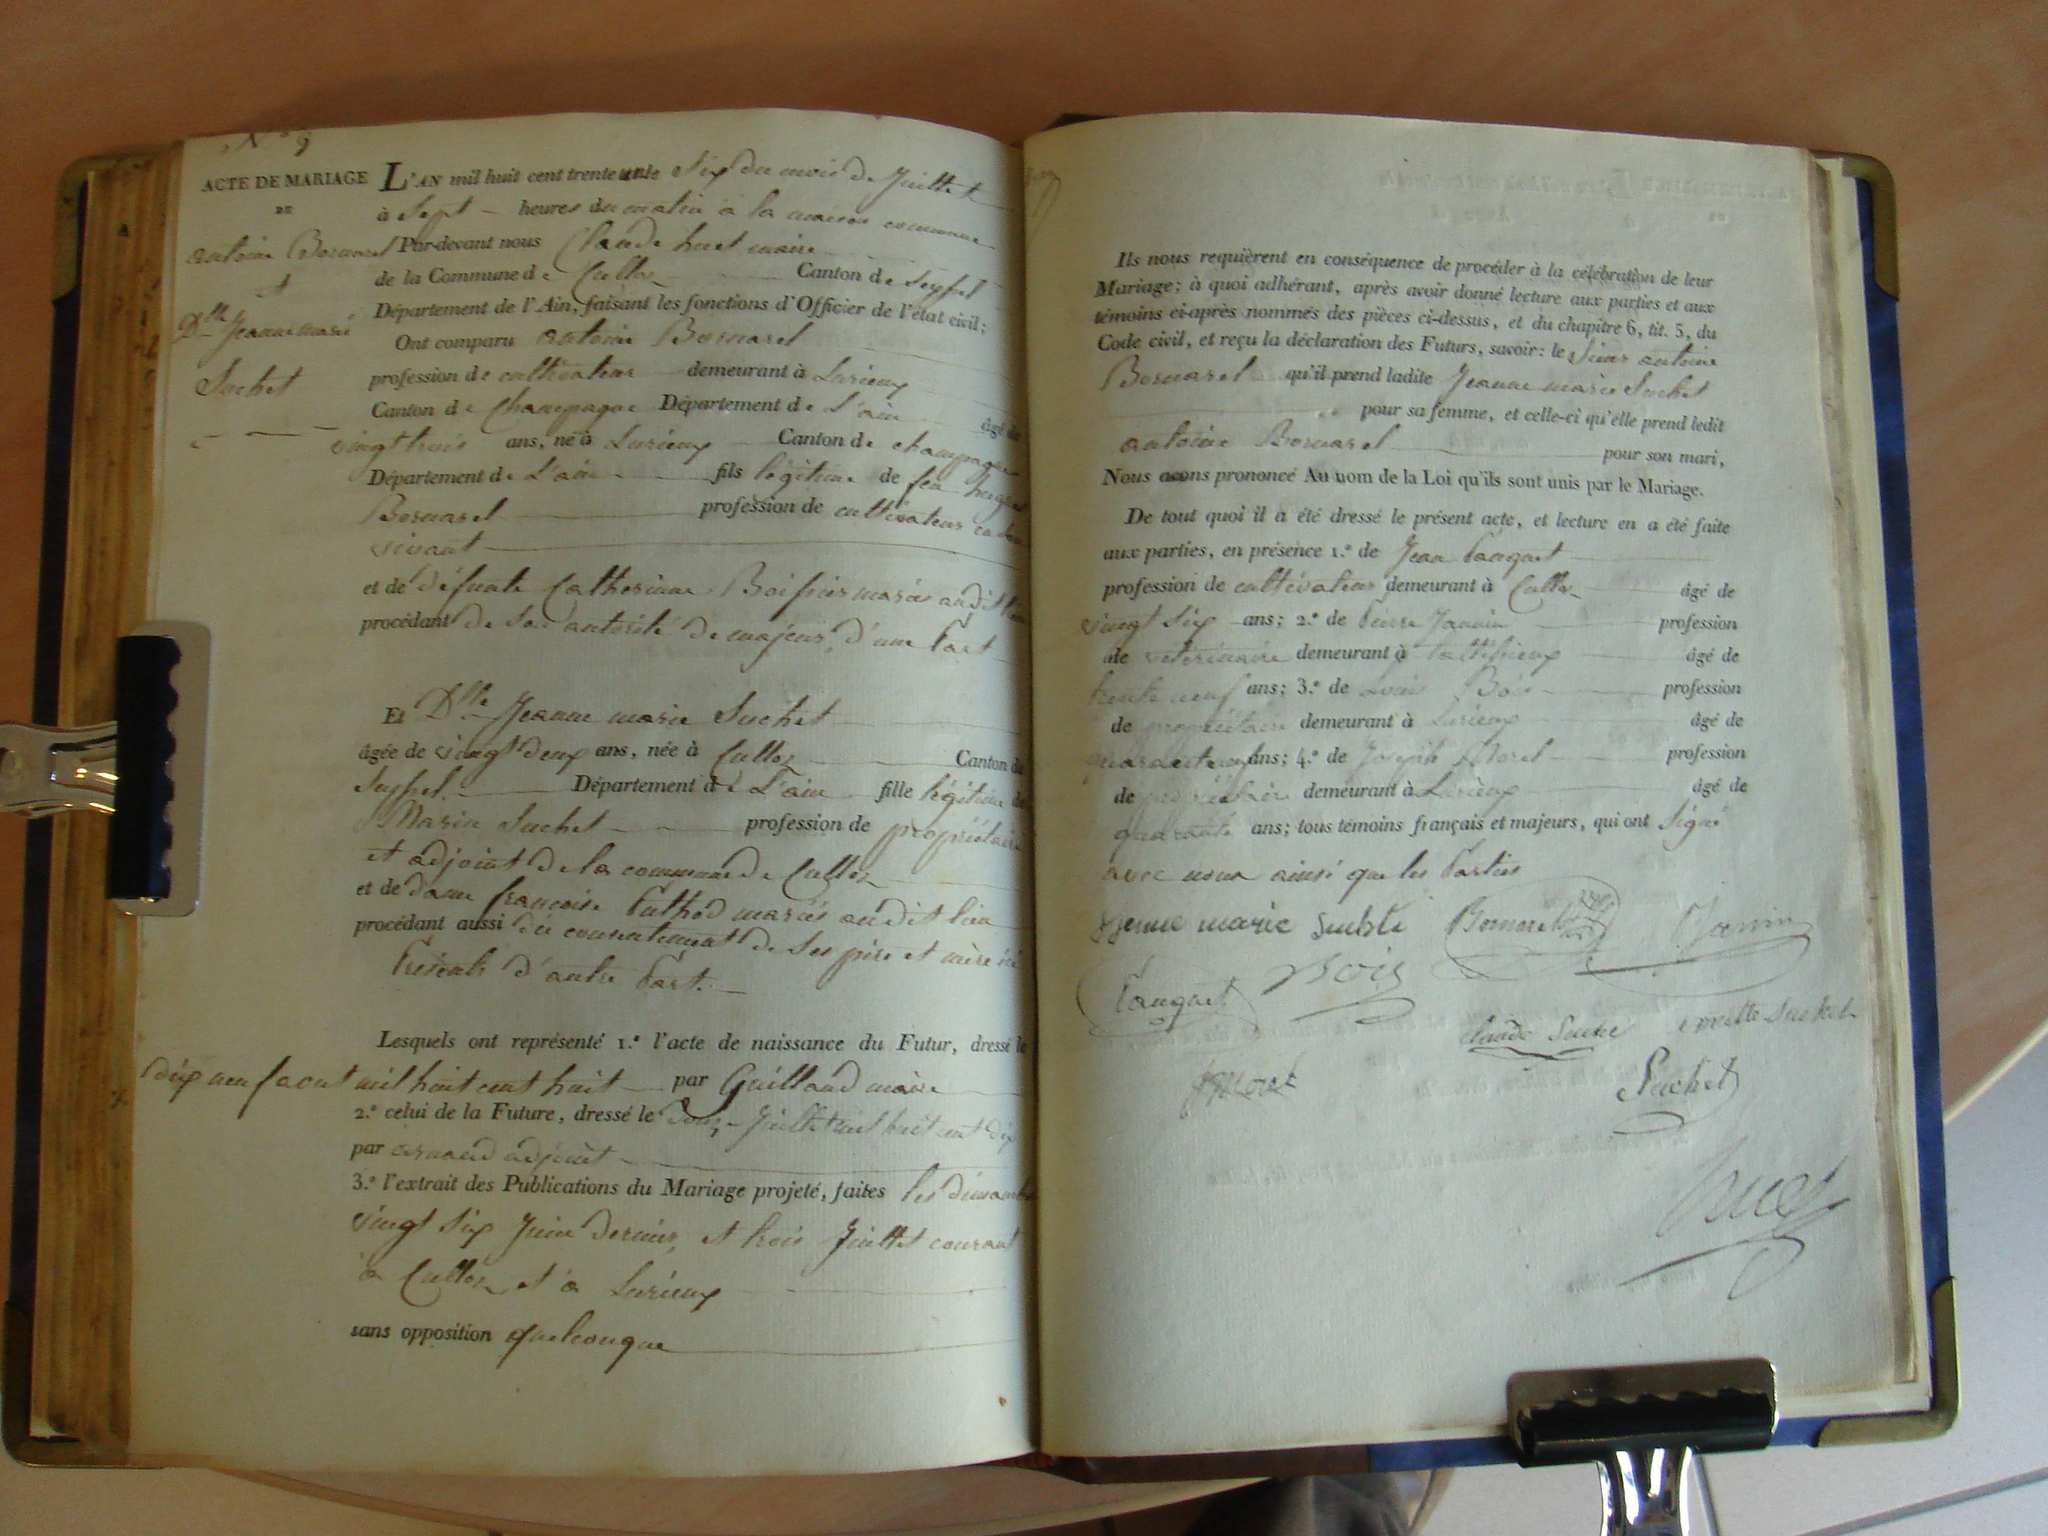 N° 9
ACTE DE MARIAGE
DE
antoine Bornarel
et
Dlle Jeanne marie
Suchet
L'AN mil huit cent trente un le Six du mois de Juillet
à Sept heures du matin à la maison commune
Par-devant nous Claude huet maire
de la Commune de Culloz Canton de Seyssel
Département de l'Ain, faisant les fonctions d'Officier de l'état civil;
Ont comparu antoine Bornarel
profession de cultivateur demeurant à Lurieux
Canton de Champagne Département de L'ain âgé de
vingt trois ans, né à Lurieux Canton de champagne
Département de L'ain fils légitime de feu
Bornarel profession de cultivateur
vivant
et de défunte Catherine mariés audit lieu
procédant de Son autorité de majeur, d'une Part
Et Dlle Jeanne marie Suchet
âgée de vingt deux ans, née à Culloz Canton de
Seyssel Département de L'ain fille légitime de
Marin Suchet profession de propriétaire
et adjoint de la commune de Culloz
et de dame françoise Puthod mariés audit lieu
procédant aussi du consentement de Ses père et mère ici
Présents d'autre Part.
Lesquels ont représenté 1.° l'acte de naissance du Futur, dressé le
dix neuf aout mil huit cent huit par Guilland maire
2.° celui de la Future, dressé le Juillet mil huit cent dix
par adjoint
3.° l'extrait des Publications du Mariage projeté, faites les dimanches
vingt six Juin dernier, et trois Juillet courant
à Culloz et à Lurieux
sans opposition quelconque
Ils nous requièrent en conséquence de procéder à la célébration de leur
Mariage; à quoi adhérant, après avoir donné lecture aux parties et aux
témoins ci-après nommés des pièces ci-dessus, et du chapitre 6, tit. 5, du
Code civil, et reçu la déclaration des Futurs, savoir: le Sieur antoine
Bornarel qu'il prend ladite Jeanne marie Suchet
pour sa femme, et celle-ci qu'elle prend ledit
antoine Bornarel pour son mari,
Nous avons prononcé Au nom de la Loi qu'ils sont unis par le Mariage.
De tout quoi il a été dressé le présent acte, et lecture en a été faite
aux parties, en présence 1.° de Jean Pauget
profession de cultivateur demeurant à Culloz âgé de
vingt six ans; 2.° de Pierre Janin profession
de vétérinaire demeurant à âgé de
trente neuf ans; 3.° de Louis Bois profession
de propriétaire demeurant à Lurieux âgé de
ans; 4.° de Joseph Morel profession
de propriétaire demeurant à Lurieux âgé de
quarante ans; tous témoins français et majeurs, qui ont Signé
avec nous ainsi que les Parties
Bornarel Janin
Pauget Bois
Claude
Suchet
Huet